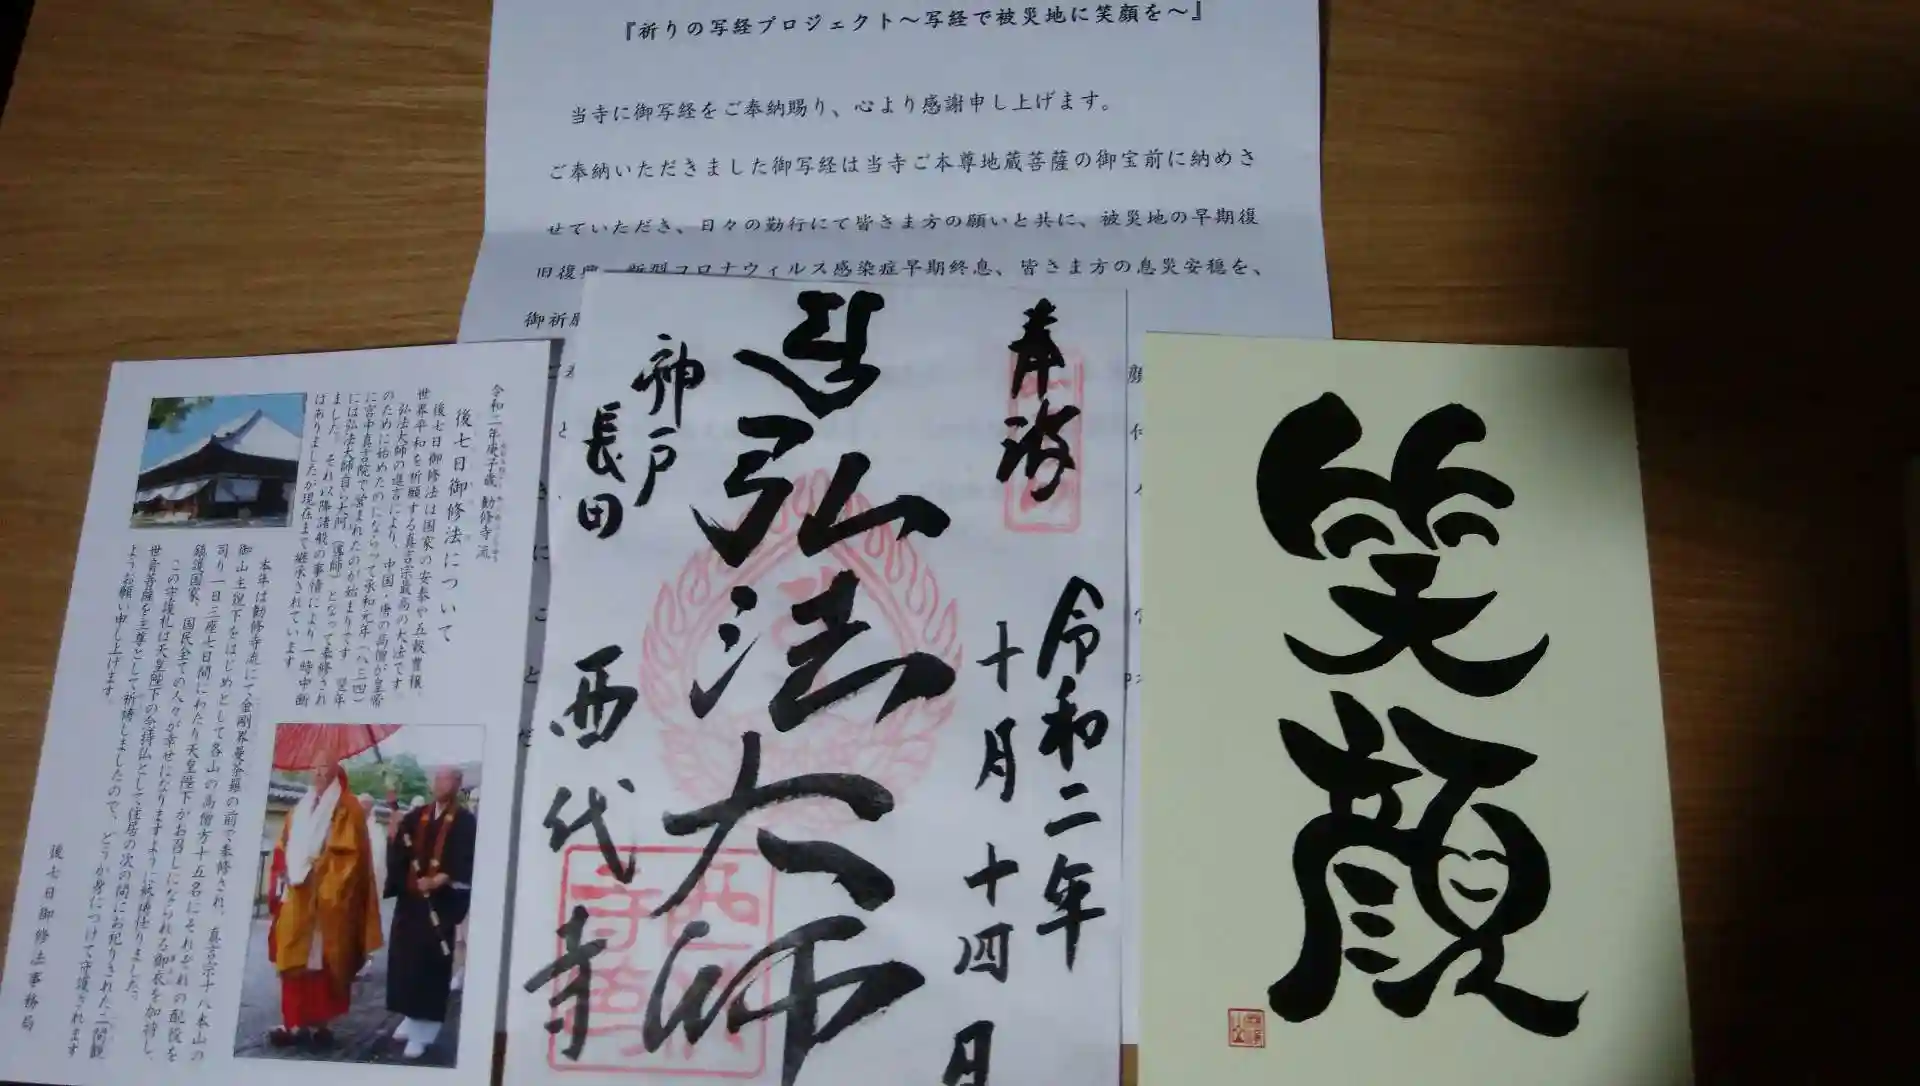 『祈りの写経プロジェクト～写経で被災地に笑顔を～』
当寺に御写経をご奉納賜り、心より感謝申し上げます。
ご奉納いただきました御写経は当寺ご本尊地蔵菩薩の御宝前に納めさ
せていただき、日々の勤行にて皆さま方の願いと共に、被災地の早期復
旧復興、新型コロナウィルス感染症早期終息、皆さま方の息災安穏を、
御祈願
令和二年庚子歳 勧修寺流
後七日御修法について
後七日御修法は国家の安泰や五穀豊穣、
世界平和を祈願する真言宗最高の大法です
弘法大師の進言により、中国・唐の高僧が皇帝
のために始めたのにならって承和元年（八三四）
に宮中真言院で営まれたのが始まりです 翌年
には弘法大師自ら大阿（導師）となって奉修され
ました。それ以降諸般の事情により一時中断
はありましたが現在まで継承されています
本年は勧修寺流にて金剛界曼荼羅の前で奉修され、真言宗十八本山の
御山主猊下をはじめとして各山の高僧方十五名にそれぞれの配役を
司り一日三座七日間にわたり天皇陛下がお召しになられる御衣を加持し、
鎮護国家、国民全ての人々が幸せになりますように祈祷仕りました。
この守護札は天皇陛下の念持仏として住居の次の間にお祀りされた二間観
世音菩薩を本尊として祈祷しましたので、どうか身につけて守護されます
ようお願い申し上げます。
後七日御修法事務局
奉拝
令和二年
十月十四日
弘法大師
神戸
長田
西代寺
笑顔